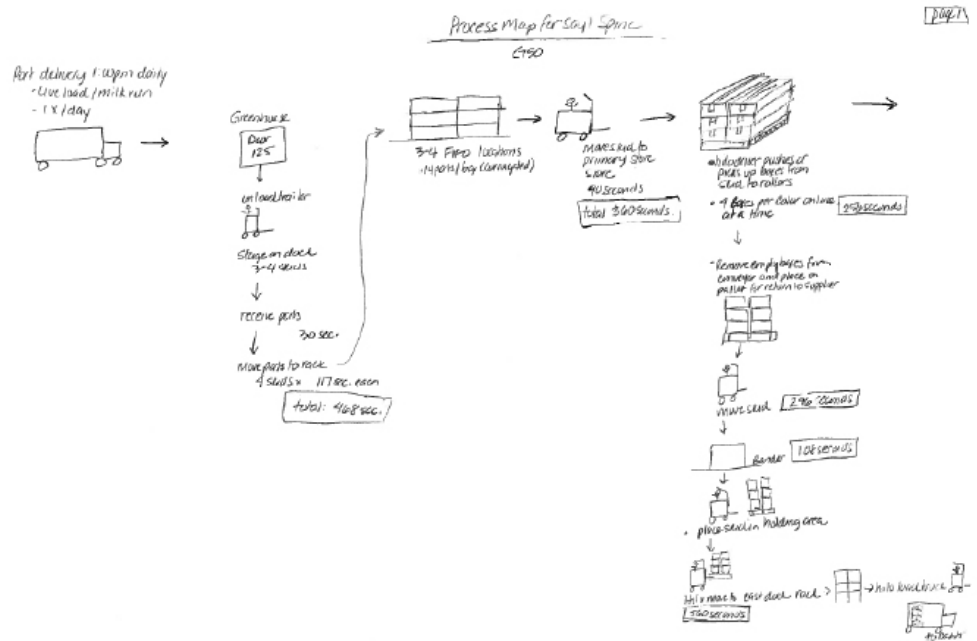 page 1
Process Map for Sayl Spine
Part delivery 1:00pm daily
- Live load/milk run
- 1x/day
Greenhouse
Door
125
unload trailer
Stage on dock
3-4 skids
receive parts
30 sec.
Move parts to rack
4 skids x 117 sec. each
total: 468 sec.
3-4 FIFO locations
move skid to
primary store
store
90 seconds
total 360 seconds.
hilo driver pushes or
picks up boxes from
skid to rollers
• 4 boxes per color on line
at a time
• Remove empty boxes from
conveyor and place on
pallet for return to supplier
move skid
296 seconds
Bander
108 seconds
• place skid in holding area
Hilo move to east dock rack >
→ hilo loads truck
560 seconds